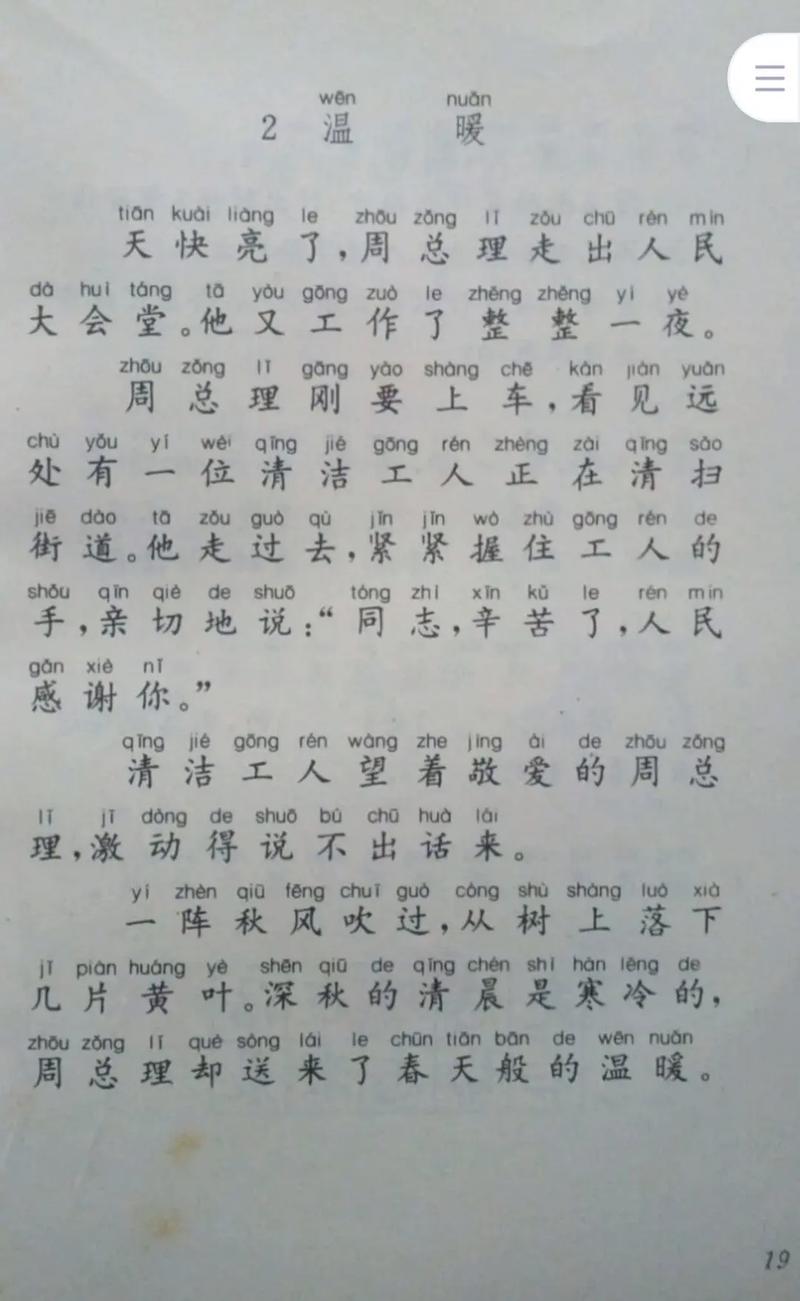 wēn nuǎn
2 温 暖
tiān kuài liàng le zhōu zǒng lǐ zǒu chū rén mín
天快亮了，周总理走出人民
dà huì táng tā yòu gōng zuò le zhěng zhěng yí yè
大会堂。他又工作了整整一夜。
zhōu zǒng lǐ gāng yào shàng chē kàn jiàn yuǎn
周总理刚要上车，看见远
chù yǒu yí wèi qīng jié gōng rén zhèng zài qīng sǎo
处有一位清洁工人正在清扫
jiē dào tā zǒu guò qù jǐn jǐn wò zhù gōng rén de
街道。他走过去，紧紧握住工人的
shǒu qīn qiè de shuō tóng zhì xīn kǔ le rén mín
手，亲切地说：“同志，辛苦了，人民
gǎn xiè nǐ
感谢你。”
qīng jié gōng rén wàng zhe jìng ài de zhōu zǒng
清洁工人望着敬爱的周总
lǐ jī dòng de shuō bù chū huà lái
理，激动得说不出话来。
yí zhèn qiū fēng chuī guò cóng shù shàng luò xià
一阵秋风吹过，从树上落下
jǐ piàn huáng yè shēn qiū de qīng chén shì hán lěng de
几片黄叶。深秋的清晨是寒冷的，
zhōu zǒng lǐ què sòng lái le chūn tiān bān de wēn nuǎn
周总理却送来了春天般的温暖。
19